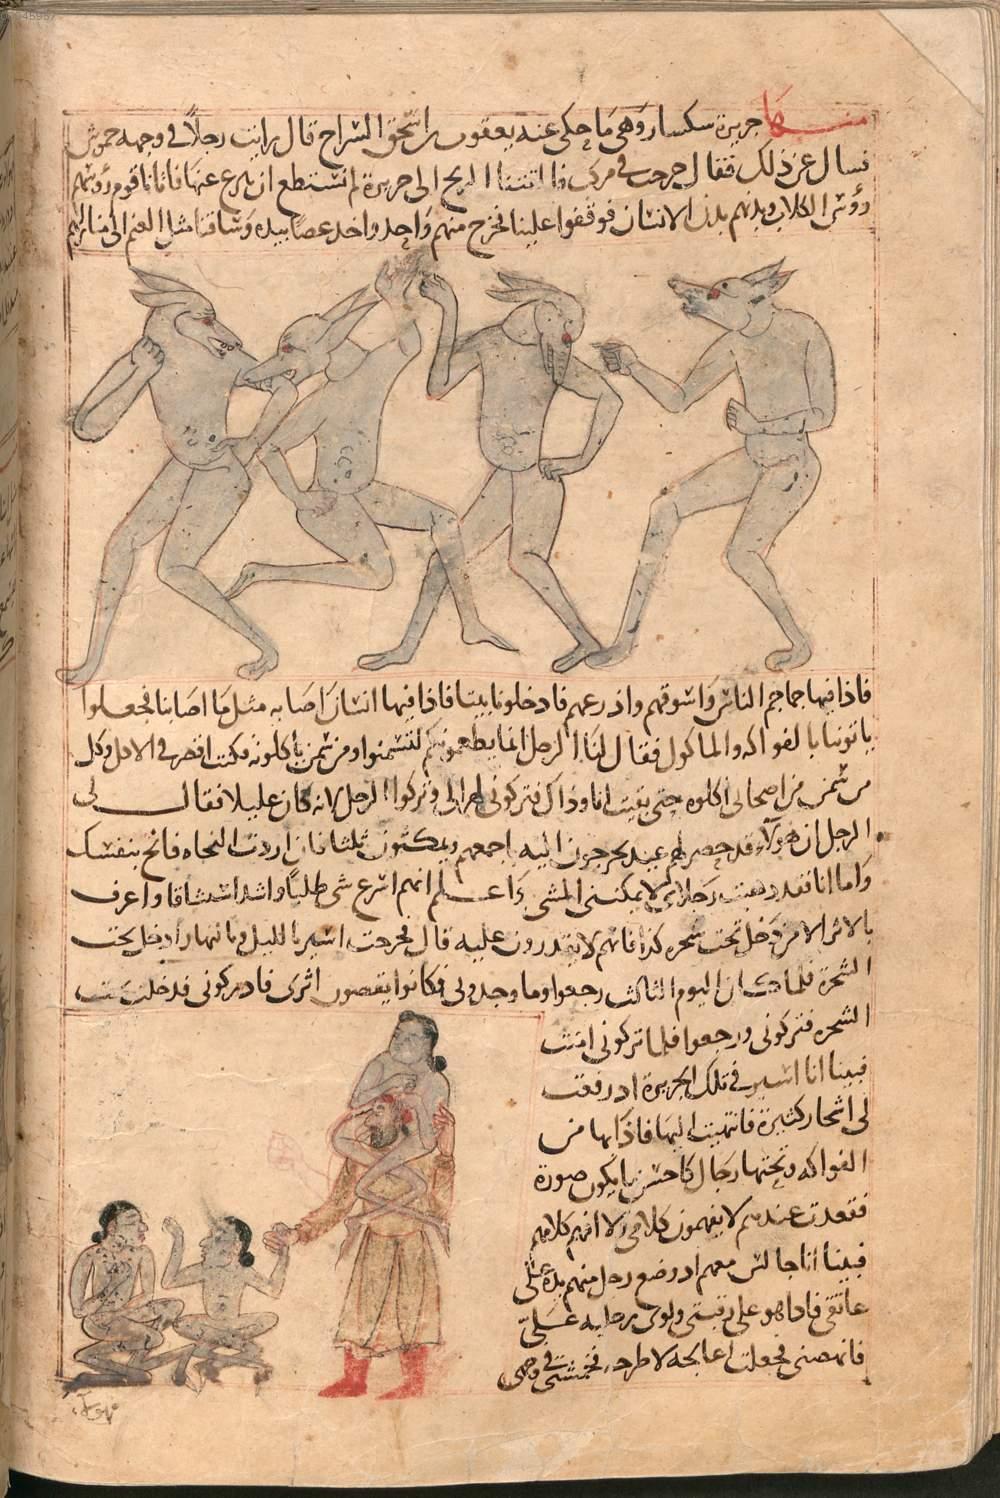 منها جزيرة سكسار وهي ما حكى عنه يعقوب بن اسحق السراج قال رايت رجلاً في وجهه خموش
فسال عن ذلك فقال خرجت في مركب فالقتنا الريح الى جزيرة لم نستطع ان نبرح عنها فاتانا قوم رؤسهم
رؤس الكلاب وبدنهم بدن الانسان فوقفوا علينا فخرج منهم واحد واخذ عصا بيده وساقنا مثل الغنم الى منازلهم
فاذا فيها جماجم الناس واسوقهم واذرعهم فادخلونا بيتا فاذا فيها انسان اصابه مثل ما اصابنا فجعلوا
ياتوننا بالفواكه والماكول فقال لنا الرجل انما يطعمونكم لتسمنوا ومن سمن ياكلونه فكنت اقصر في الاكل وكل
من سمن من اصحابي اكلوه حتى بقيت انا وذاك فتركوني لهزالي وتركوا الرجل لانه كان عليلا فقال لي
الرجل ان هولاء قد حضر لهم عيد يخرجون اليه باجمعهم ويمكثون ثلثا فان اردت النجاه فانج بنفسك
واما انا فقد ذهبت رجلاي لا يمكنني المشي واعلم انهم اسرع شي طلبا واشد استنشاقا واعرف
بالاثر الا من دخل تحت شجره كذا فانهم لا يقدرون عليه قال فخرجت اسير بالليل وبالنهار ادخل تحت
الشجرة فلما كان اليوم الثالث رجعوا وما وجدوني فكانوا يقصون اثري فادركوني فدخلت تحت
الشجره فتركوني ورجعوا فلما تركوني امنت
فبينا انا اسير في تلك الجزيرة اذ رفعت
لي اشجار كثيرة فانتهيت اليها فاذا بها من
الفواكه وتحتها رجال كاحسن ما يكون صورة
فقعدت عندهم لا يفهمون كلامي ولا افهم كلامهم
فبينا انا جالس معهم اذ وضع رجل منهم يده على
عاتقي فاذا هو على رقبتي ولوى رجليه علىّ
فانهضني فجعلت اعالجه لاطرحه فخمشني في وجهي